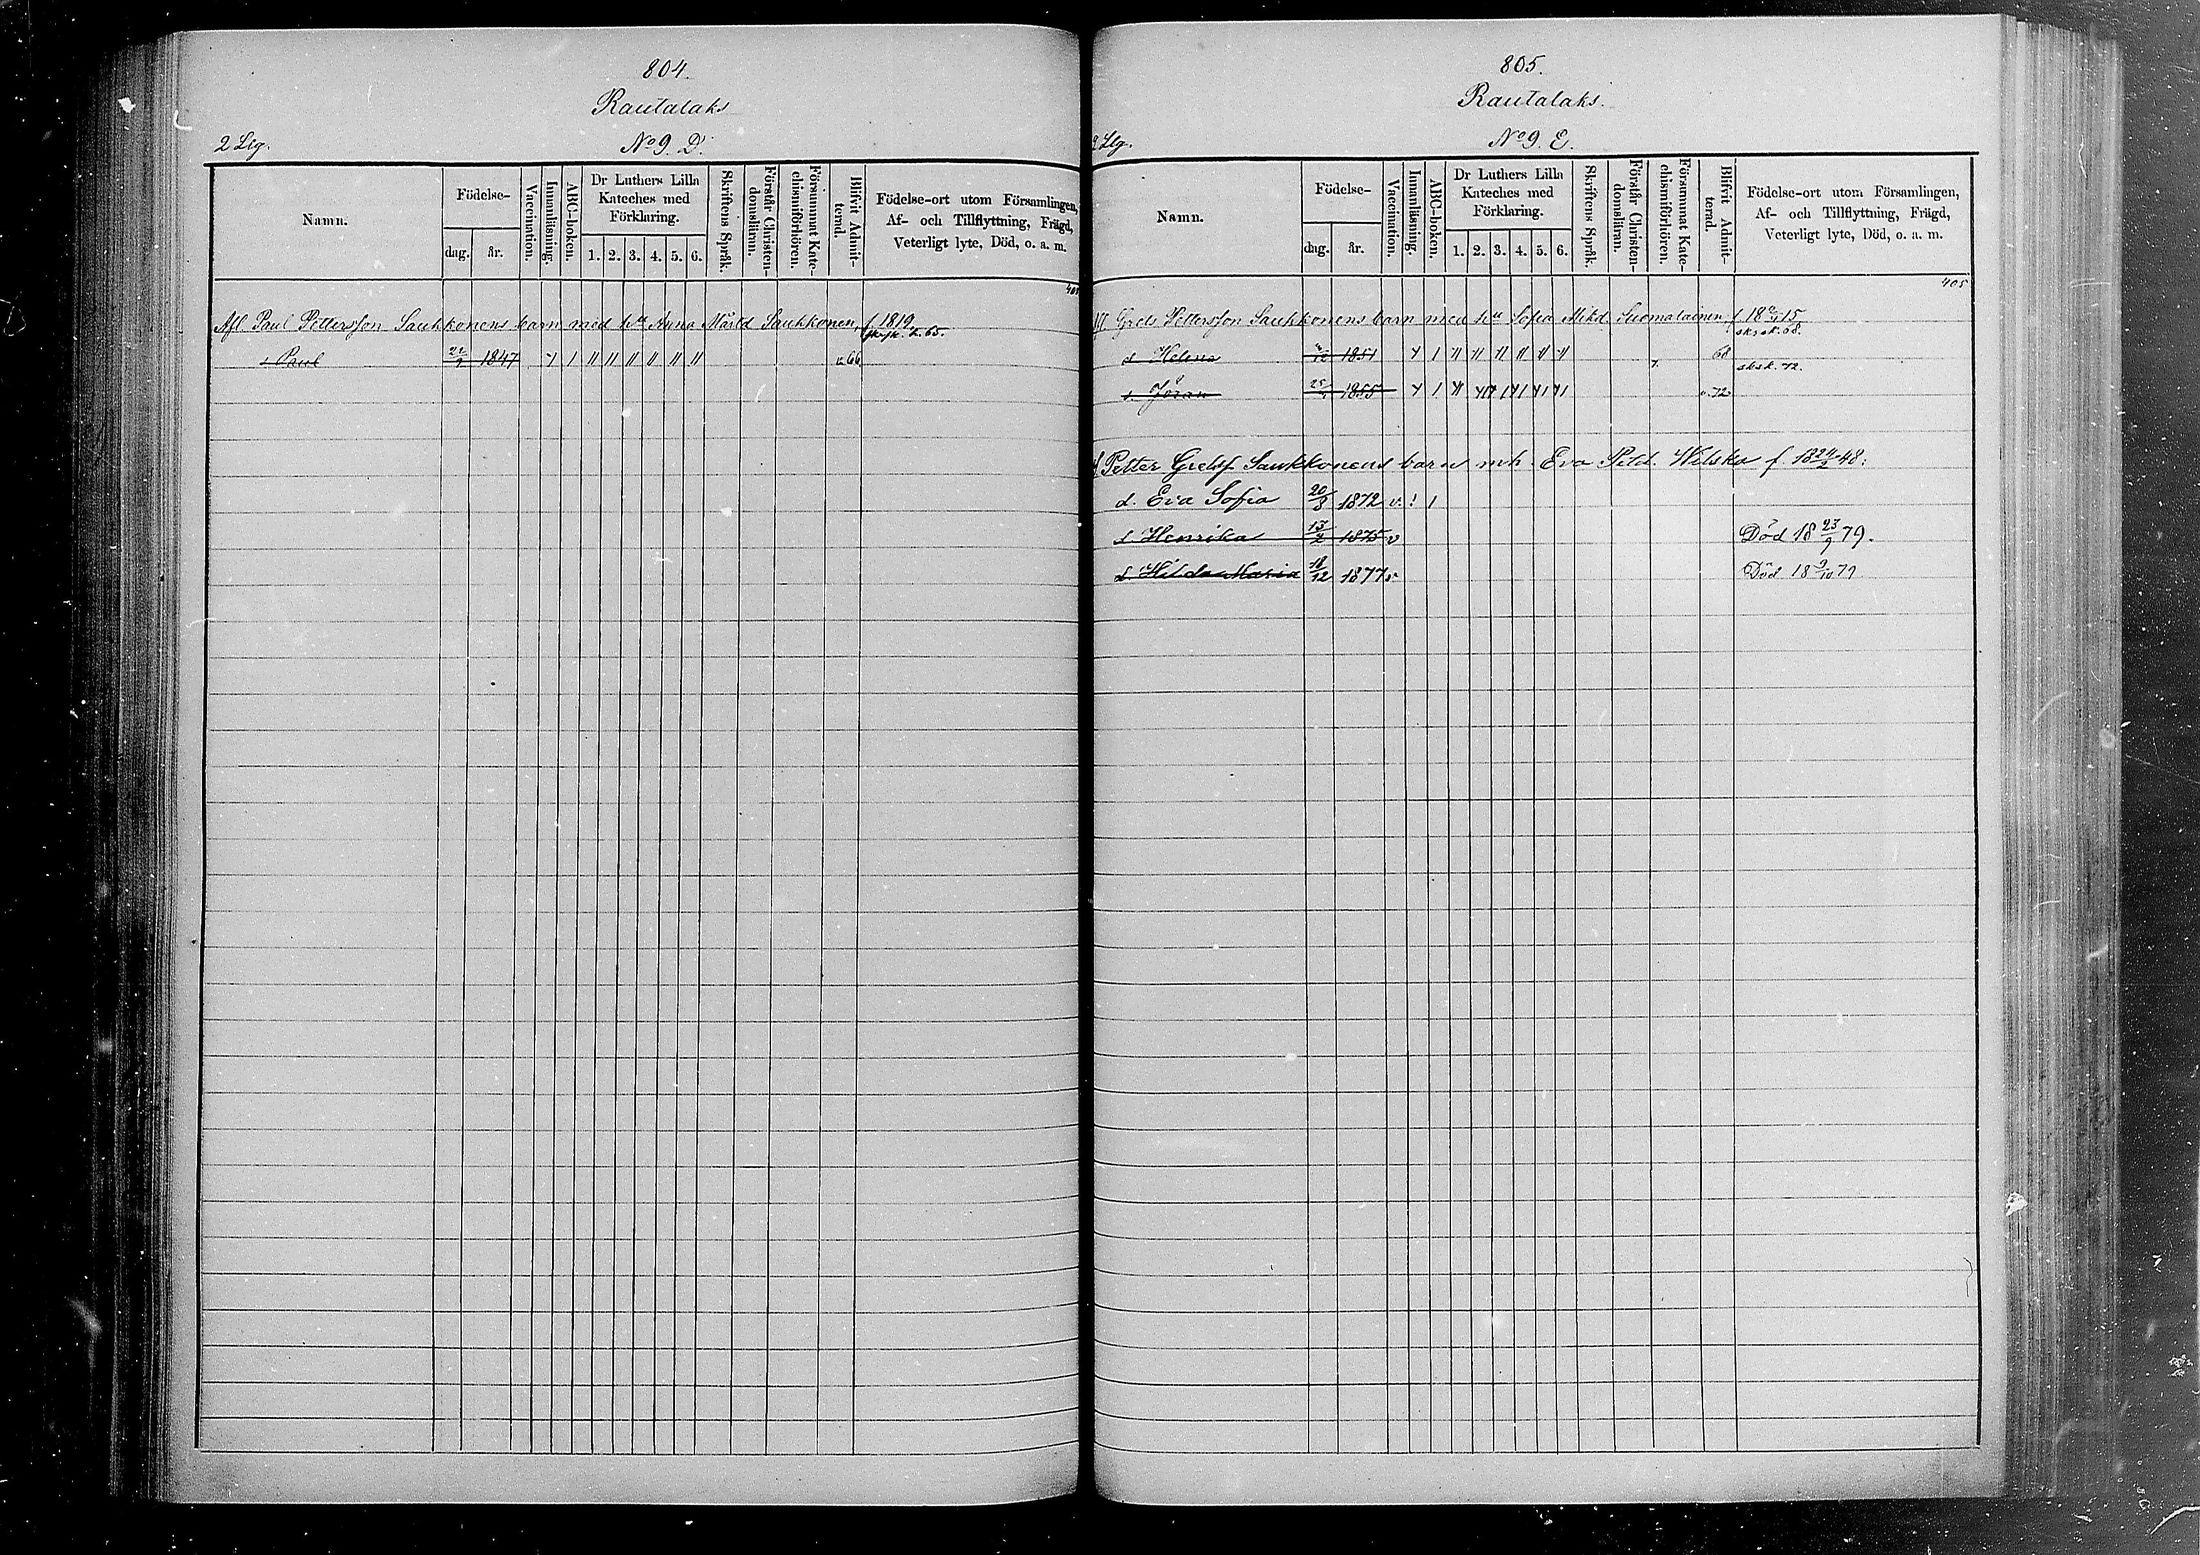 804.
Rautalaks
2 Lig. No 9. D.
Namn. Födelse- dag. år. Vaccination. Innanläsning. ABC-boken. Dr Luthers Lilla Kateches med Förklaring. 1. 2. 3. 4. 5. 6. Skriftens Språk. Förstår Christen-domsläran. Försummat Kate-chismiförhören. Blifvit Admit-terad. Födelse-ort utom Församlingen, Af- och Tillflyttning, Frägd, Veterligt lyte, Död, o. a. m.
Afl. Paul Pettersson Saukkonens barn med hu Anna Mårtd Saukkonen, f 1819.
s Paul 1847 66
805.
Rautalaks.
No 9. E.
Namn. Födelse- dag. år. Vaccination. Innanläsning. ABC-boken. Dr Luthers Lilla Kateches med Förklaring. 1. 2. 3. 4. 5. 6. Skriftens Språk. Förstår Christen-domsläran. Försummat Kate-chismiförhören. Blifvit Admit-terad. Födelse-ort utom Församlingen, Af- och Tillflyttning, Frägd, Veterligt lyte, Död, o. a. m.
405
Grels Pettersson Saukkonens barn med hu Sofia Mikd Suomalainen, f 15
sksk. 68.
d Helena 1851 68
sksk. 72.
s. Jöran 25 1855 72
Petter Grelsf Saukkonens barn mh. Eva Pild. Wilska f. 18 24/2 48.
d. Eva Sofia 20/8 1872 v. 1 1
d Henrika 13/2 1875 v Död 18 23/9 79.
d. Hilda Maria 18/12 1877 v Död 18 9/10 79